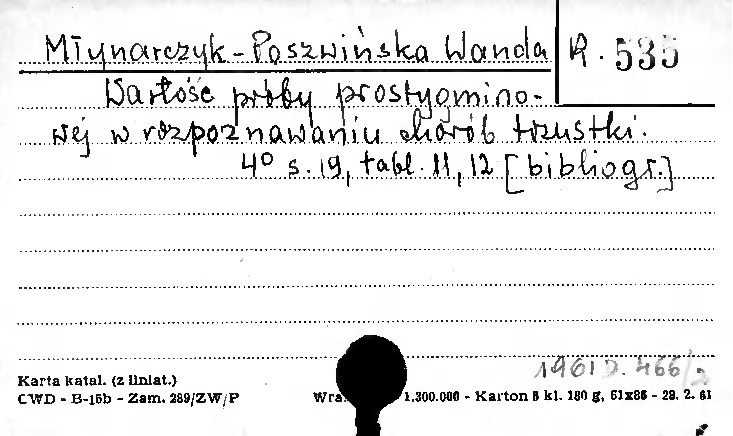 Młynarczyk-Poszwińska Wanda R. 535
Wartość próby prostygmino-
wej w rozpoznawaniu chorób trzustki.
4° s. 19, tabl. 11, 12 [bibliogr.]
1961 D. 466/2
Karta katal. (z liniat.)
CWD - B-15b - Zam. 289/ZW/P Wra. 1.300.000 - Karton B kl. 180 g, 61x86 - 28. 2. 61